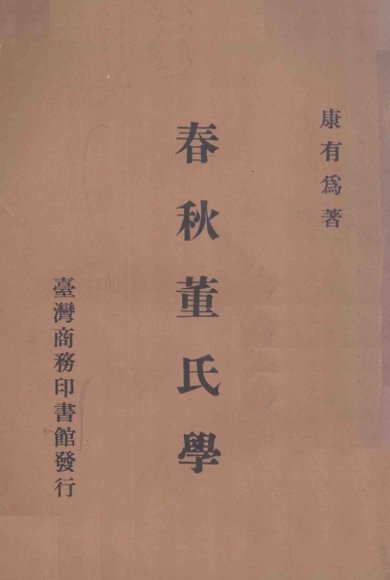 康有爲著
春秋董氏學
臺灣商務印書館發行